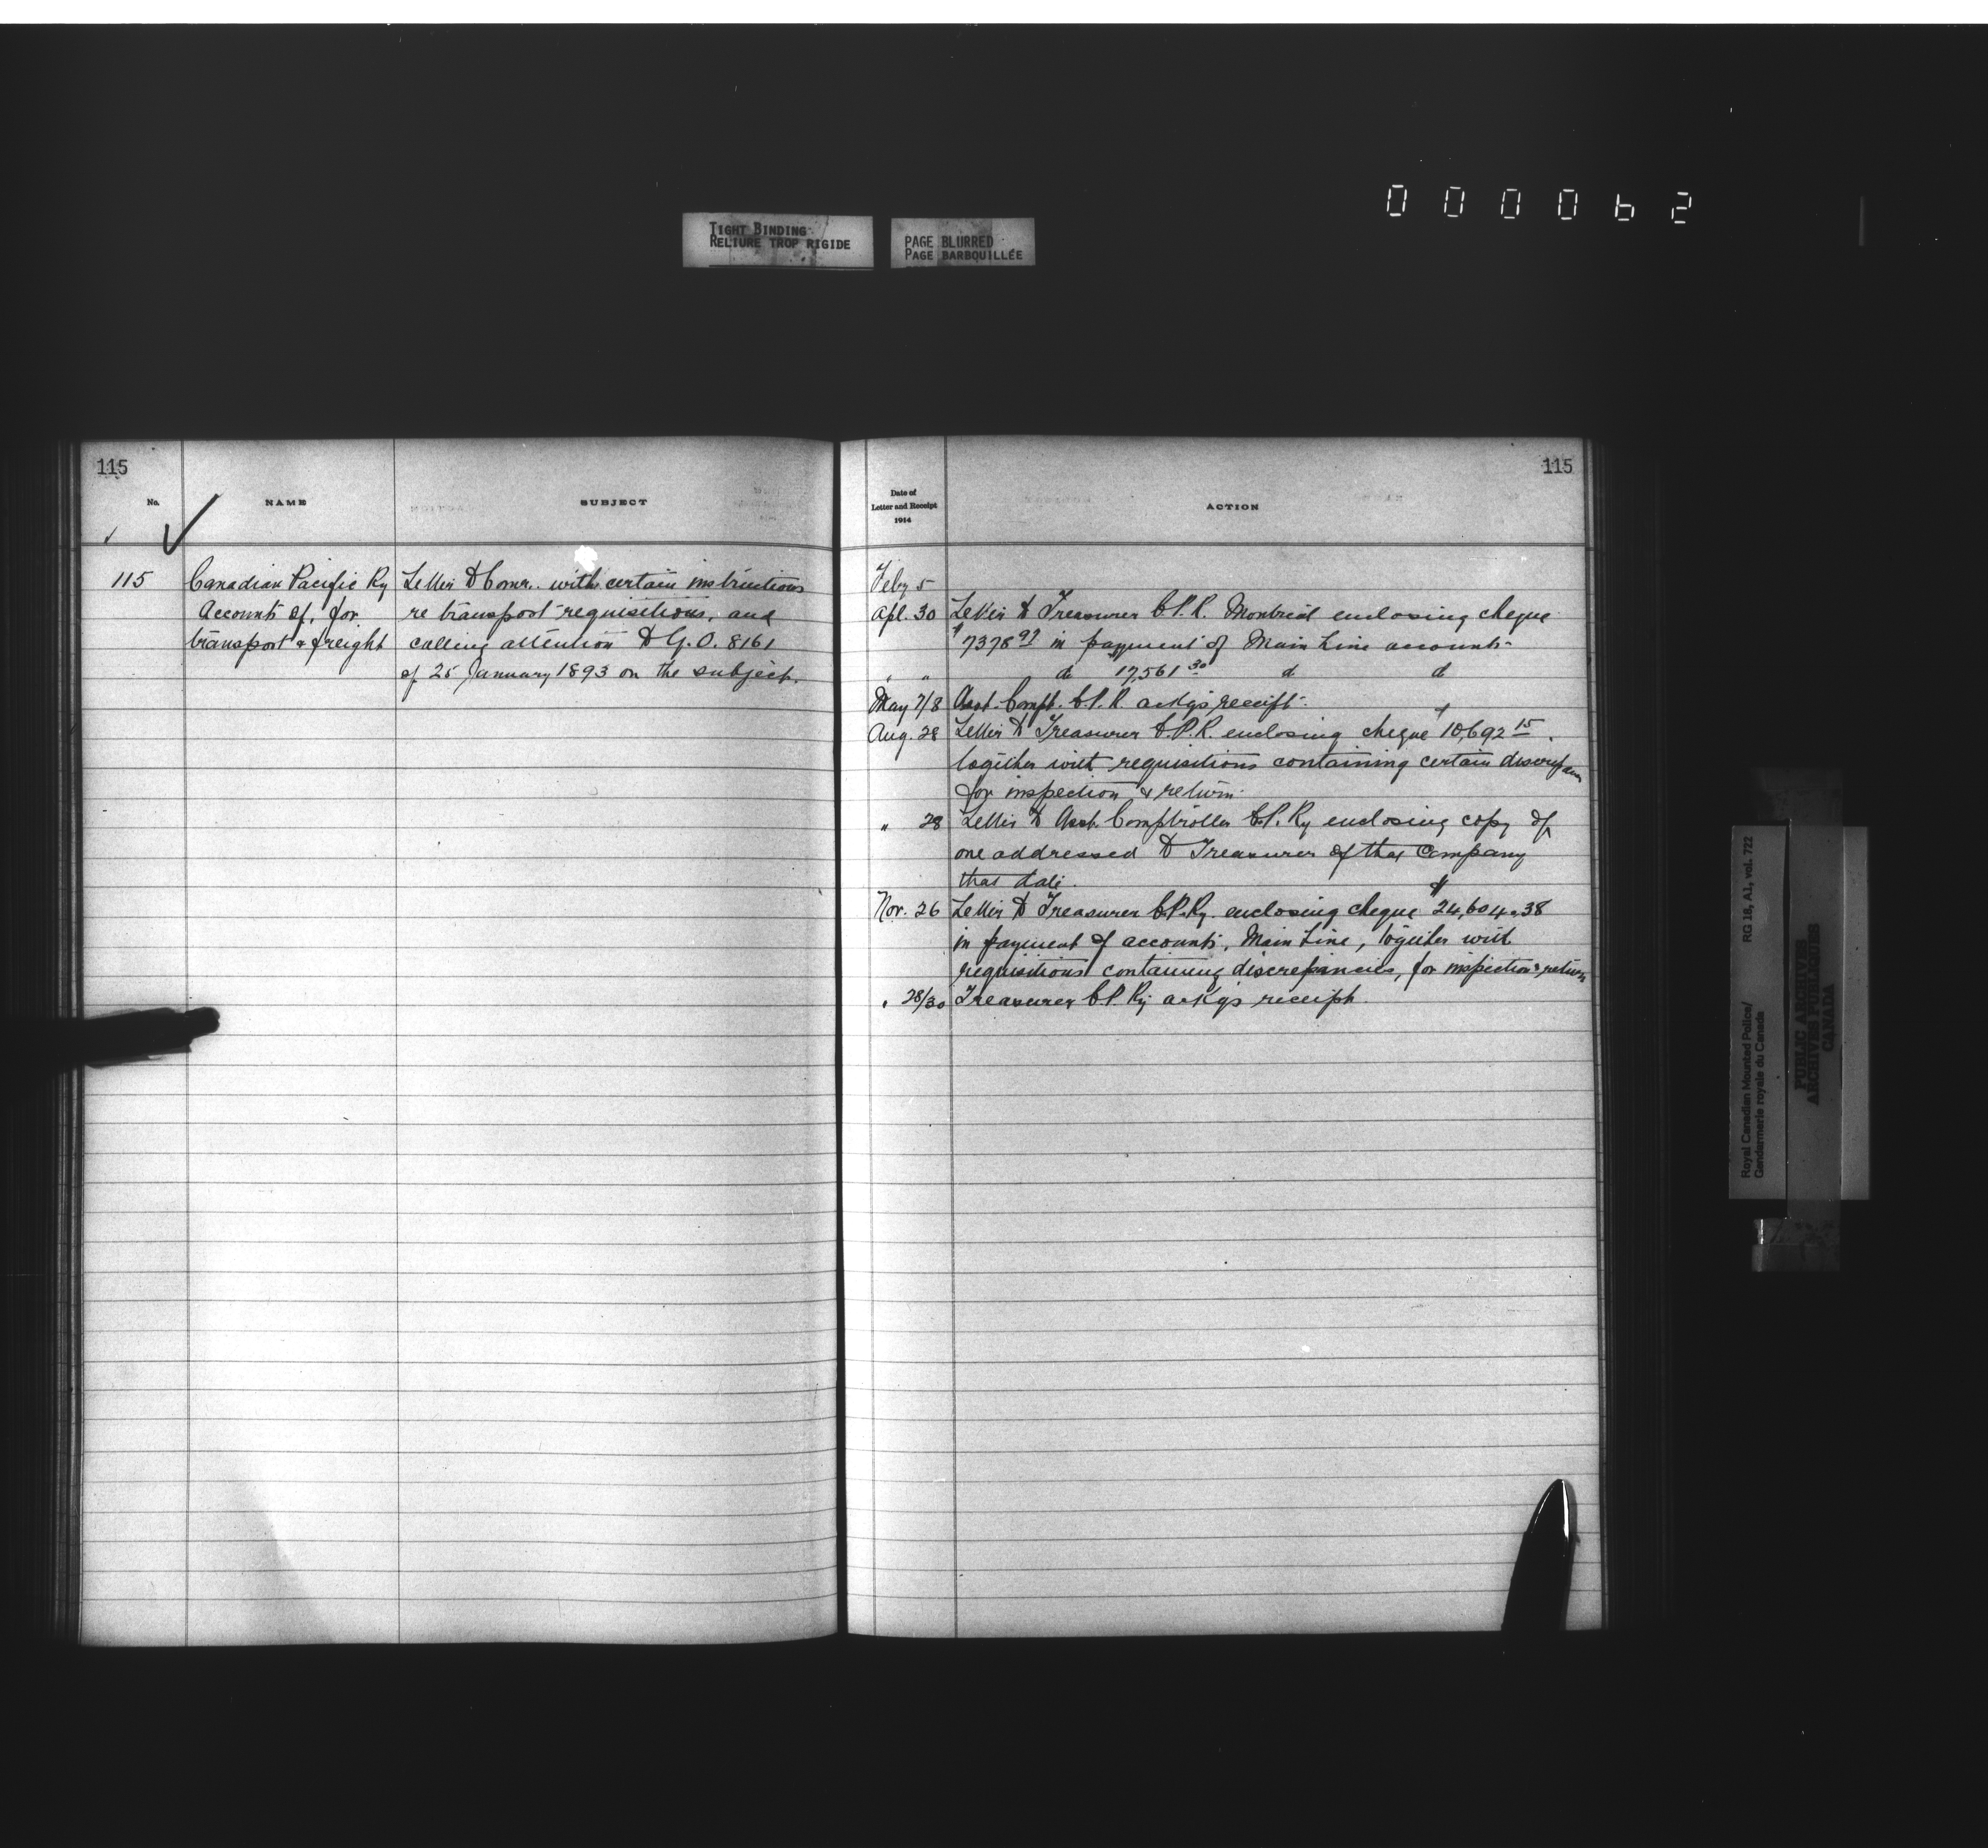 000062
TIGHT BINDING
RELIURE TROP RIGIDE
PAGE BLURRED
PAGE BARBOUILLÉE
115
No.
NAME
SUBJECT
115 Canadian Pacific Ry
Accounts of, for
transport & freight
Letter to Comr. with certain instructions
re transport requisitions, and
calling attention to G.O. 8161
of 25 January 1893 on the subject.
115
Date of
Letter and Receipt
1914
ACTION
Feby 5
Apl. 30 Letter to Treasurer C.P.R. Montreal enclosing cheque
$7378 97 in payment of Main Line accounts-
" " do 17,561 30 do do
May 7/8 Asst. Compt. C.P.R. ackgs receipt.
Aug. 28 Letter to Treasurer C.P.R. enclosing cheque $10,692 15.
together with requisitions containing certain
for inspection & return.
" 28 Letter to Asst. Comptroller C.P. Ry enclosing copy of
one addressed to Treasurer of that Company
that date.
Nov. 26 Letter to Treasurer C.P. Ry. enclosing cheque $24,604.38
in payment of accounts, Main Line, together with
requisitions containing discrepancies, for inspection & return
" 28/30 Treasurer C.P. Ry ackgs receipt.
Royal Canadian Mounted Police/
Gendarmerie royale du Canada
RG 18, A1, vol. 722
PUBLIC ARCHIVES
ARCHIVES PUBLIQUES
CANADA